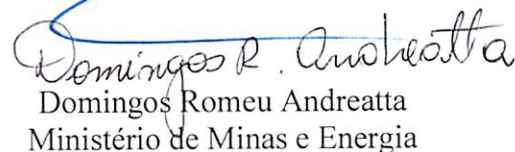 Domingos R. Andreatta
Domingos Romeu Andreatta
Ministério de Minas e Energia